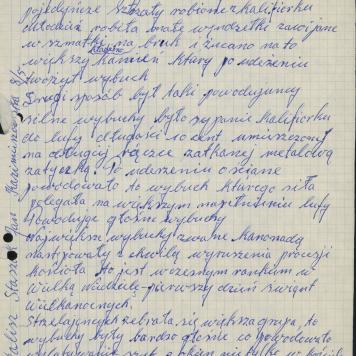 pojedyńcze strzały robione z kalifiorku
młodzież robiła małe wyndzetki zawijane
w szmatki na bruk i żucano na to
kładziono
większy kamień który po uderzeniu
tworzył wybuch
Drugi sposób był taki powodujący
silne wybuchy było sypanie kalifiorku
do lufy długości 10 cent. umieszczonej
na długiej rączce zatkanej metalową
zatyczką. Po uderzeniu o ściane
powodowało to wybuch którego siła
polegała na większym napełnieniu lufy
Powodując głośne wybuchy
Największe wybuchy zwane kanonadą
następowały z chwilą wyruszenia procesji
kościoła to jest wczesnym rankiem w
Wielką niedziele pierwszy dzień świąt
wielkanocnych.
Strzelających zebrała się większa grupa, to
wybuchy były bardzo głośne co powodowało
szyb z okien nie tylko w
Kalisz Stasz Jan 8/5